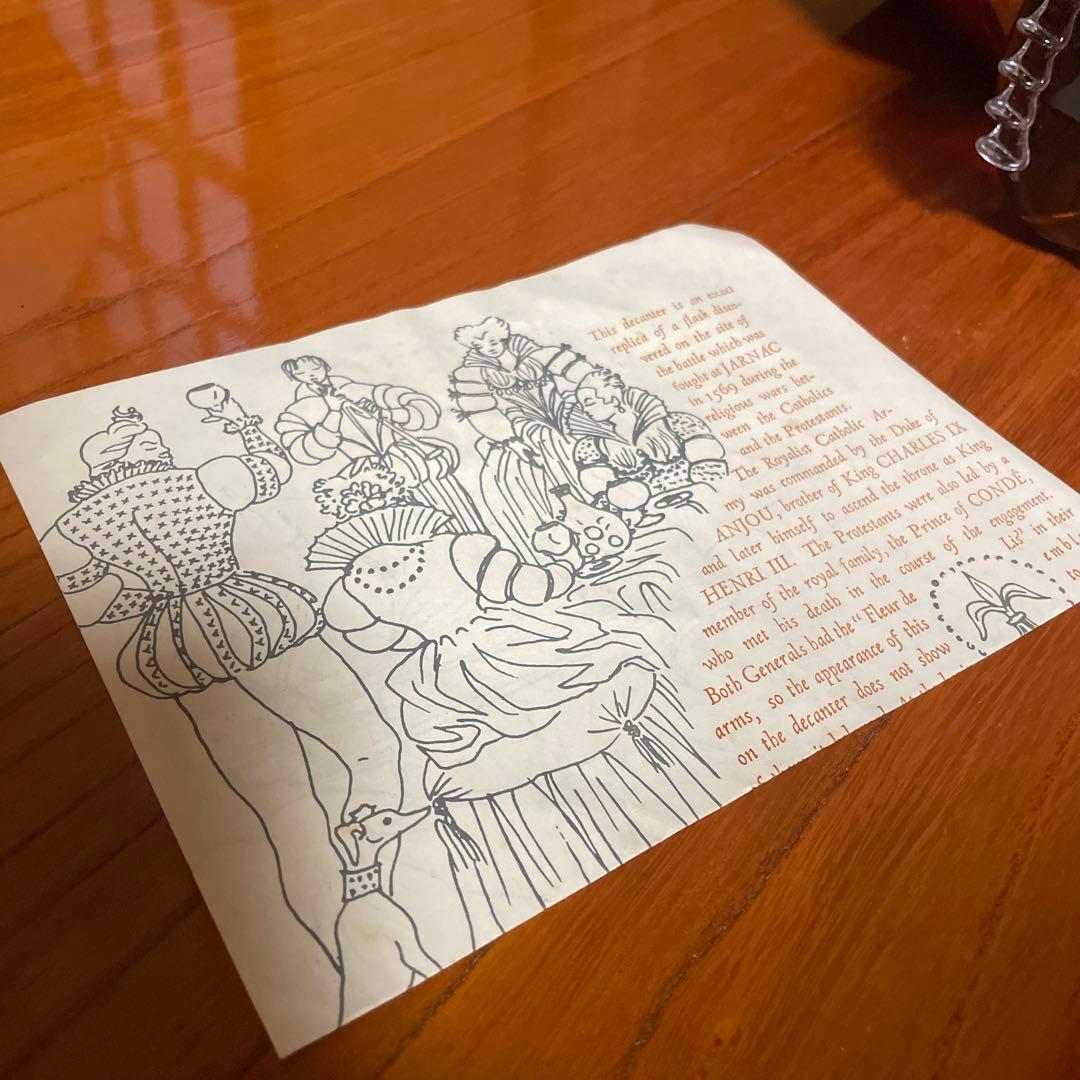 This decanter is an exact
replica of a flask disco-
vered on the site of
the battle which was
fought at JARNAC
in 1569 during the
religious wars bet-
ween the Catholics
and the Protestants.
The Royalist Catholic Ar-
my was commanded by the Duke of
ANJOU, brother of King CHARLES IX
and later himself to ascend the throne as King
HENRI III. The Protestants were also led by a
member of the royal family, the Prince of CONDÉ,
who met his death in the course of the engagement.
Both Generals had the "Fleur de Lis" in their
arms, so the appearance of this
on the decanter does not show